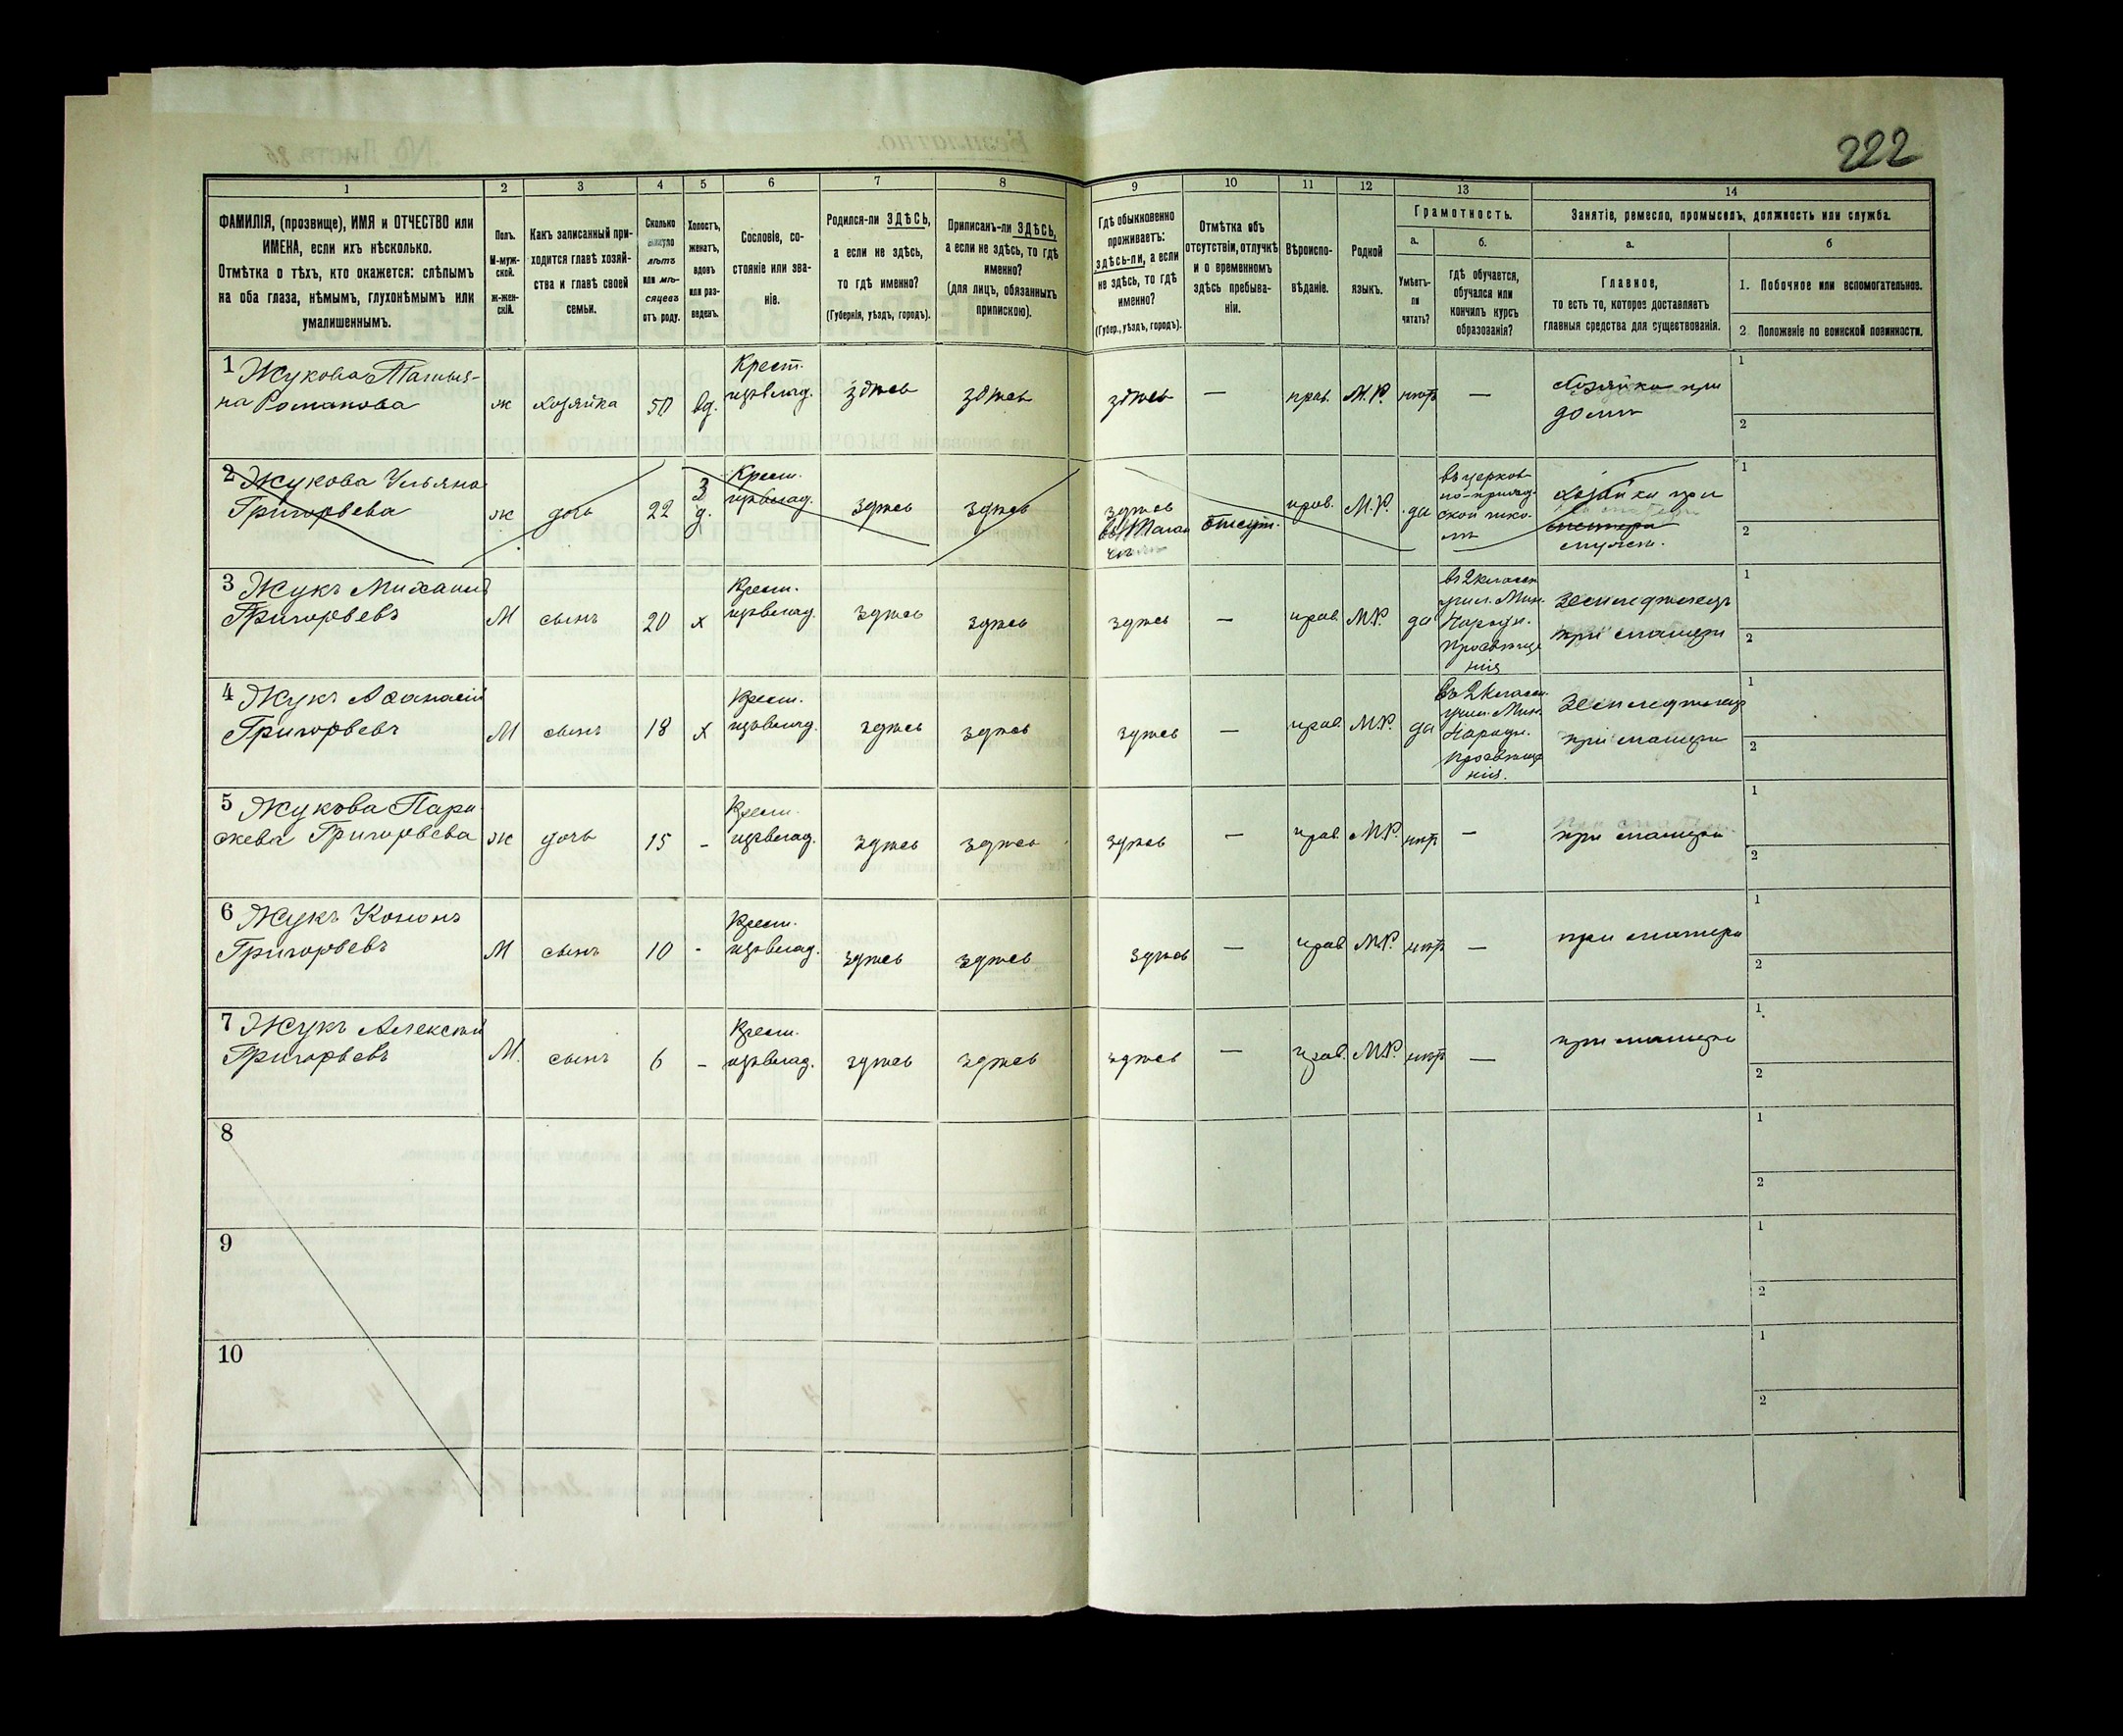 222
1 2 3 4 5 6 7 8 9 10 11 12 13 14
ФАМИЛІЯ, (прозвище), ИМЯ и ОТЧЕСТВО или
ИМЕНА, если ихъ нѣсколько.
Отмѣтка о тѣхъ, кто окажется: слѣпымъ
на оба глаза, нѣмымъ, глухонѣмымъ или
умалишеннымъ.
Полъ.
М-муж-
ской.
ж-жен-
скій.
Какъ записанный при-
ходится главѣ хозяй-
ства и главѣ своей
семьи.
Сколько
минуло
лѣтъ
или мѣ-
сяцевъ
отъ роду.
Холостъ,
женатъ,
вдовъ
или раз-
веденъ.
Сословіе, со-
стояніе или зва-
ніе.
Родился-ли ЗДѢСЬ,
а если не здѣсь,
то гдѣ именно?
(Губернія, уѣздъ, городъ).
Приписанъ-ли ЗДѢСЬ,
а если не здѣсь, то гдѣ
именно?
(для лицъ, обязанныхъ
припискою).
Гдѣ обыкновенно
проживаетъ:
здѣсь-ли, а если
не здѣсь, то гдѣ
именно?
(Губер., уѣздъ, городъ).
Отмѣтка объ
отсутствіи, отлучкѣ
и о временномъ
здѣсь пребыва-
ніи.
Вѣроиспо-
вѣданіе.
Родной
языкъ.
Грамотность.
а.
Умѣетъ-
ли
читать?
б.
гдѣ обучается,
обучался или
кончилъ курсъ
образованія?
Занятіе, ремесло, промыселъ, должность или служба.
а.
Главное,
то есть то, которое доставляетъ
главныя средства для существованія.
б
1. Побочное или вспомогательное.
2 Положеніе по воинской повинности.
1 Жукова Татья-
на Романова
ж хозяйка 50 вд.
Крест.
здѣсь здѣсь здѣсь — прав. М.Р. нѣтъ —
Хозяйка при
домѣ
1
2
2 Жукова Ульяна
Григорьева
ж дочь 22 з
д.
Крест.
здѣсь здѣсь здѣсь
отсут. прав. М.Р. да
въ церков-
но-приход-
ской шко-
лѣ
хозяйка при
1
2
3 Жукъ Михаилъ
Григорьевъ
М сынъ 20 х
Крест.
здѣсь здѣсь здѣсь — прав. М.Р. да
въ 2 класс.
учил. Мин.
Народн.
Просвѣще
нія
Земледѣлецъ
при матери
1
2
4 Жукъ Афанасій
Григорьевъ
М сынъ 18 х
Крест.
здѣсь здѣсь здѣсь — прав. М.Р. да
въ 2 класс.
учил. Мин.
Народн.
Просвѣще
нія.
Земледѣлецъ
при матери
1
2
5 Жукова Пара
скева Григорьева
ж дочь 15 –
Крест.
здѣсь здѣсь здѣсь — прав. М.Р. нѣтъ —
при матери
1
2
6 Жукъ Кононъ
Григорьевъ
М сынъ 10 -
Крест.
здѣсь здѣсь здѣсь — прав М.Р. нѣтъ —
при матери
1
2
7 Жукъ Алексѣй
Григорьевъ
М. сынъ 6 –
Крест.
здѣсь здѣсь здѣсь — прав. М.Р. нѣтъ —
при матери
1
2
8
1
2
9
1
2
10
1
2